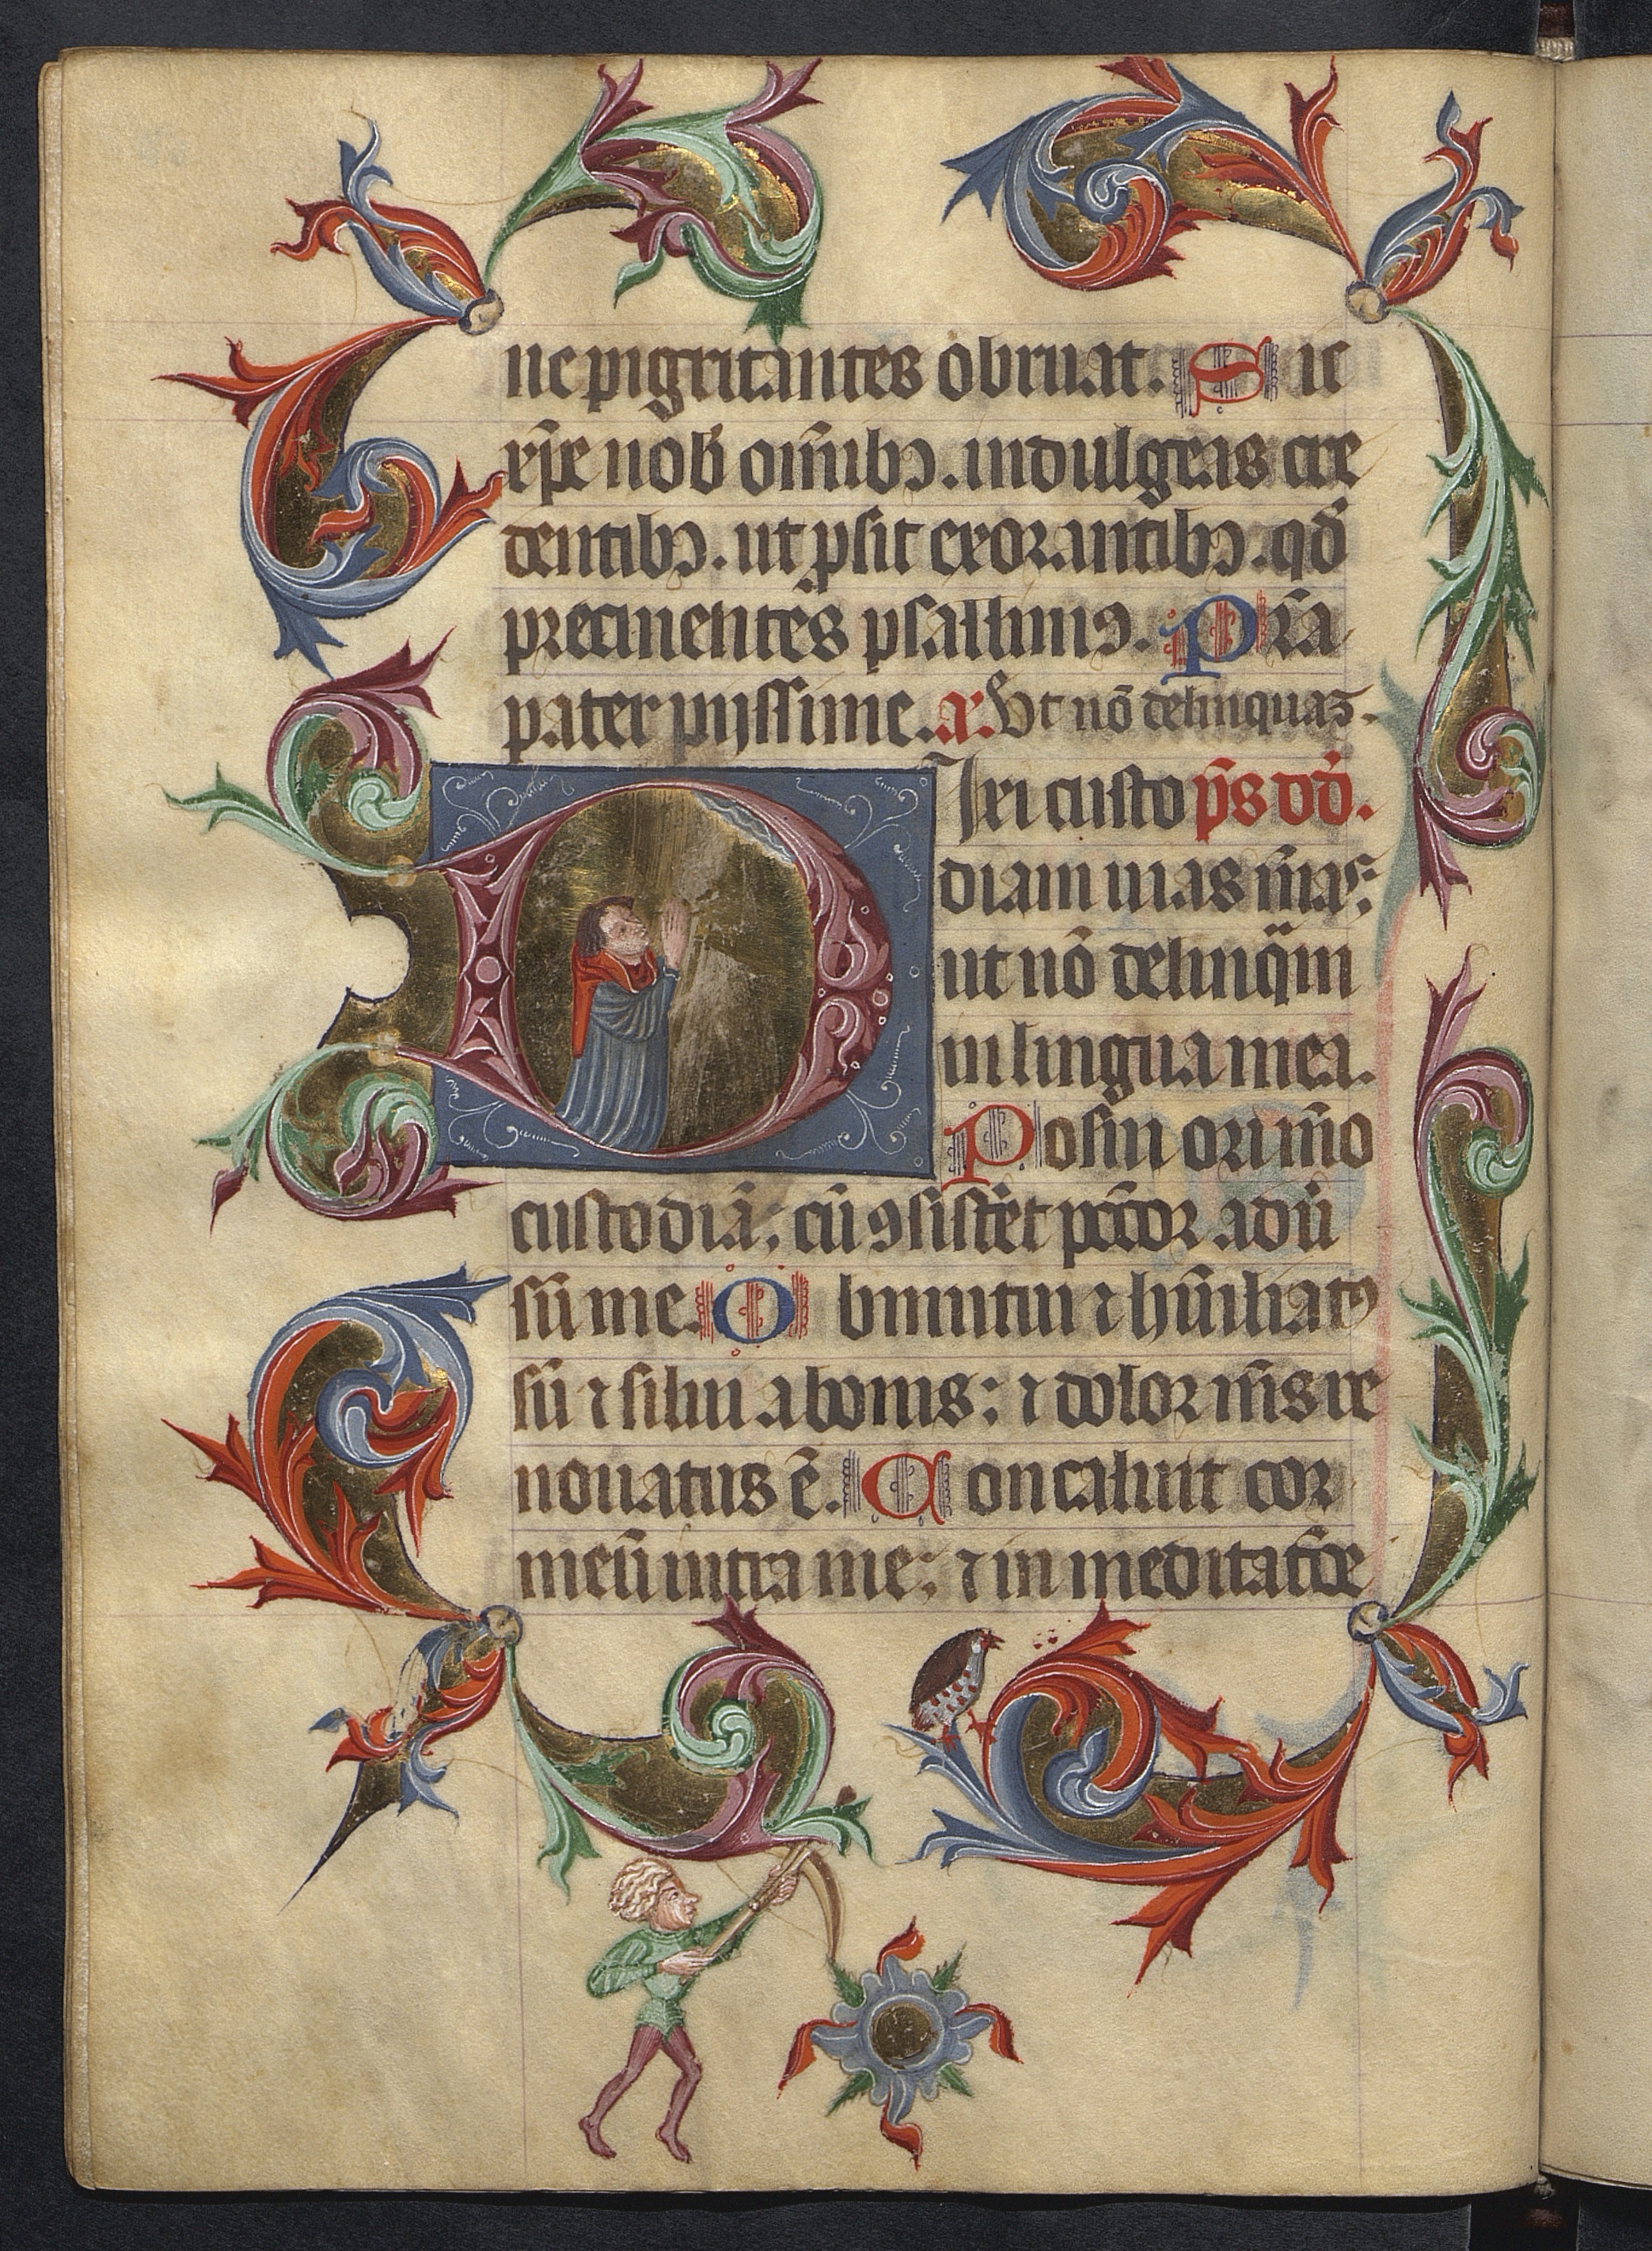 ne pigritantes obruat. Sic
xp̄e nob̄ om̄ibꝫ. indulgeas cre
dentibꝫ. ut ꝓsit exorantibꝫ. qd̄
precinentes psallimꝰ. Pr̄a
pater pijssime. a. Ut nō delinquaꝫ.
Dixi custo p̄s dd̄.
diam uias m̄as:
ut nō delinq̄m
in lingua mea.
Posui ori m̄o
custodiā: cū ꝯsistet̄ pc̄cor adū
sū me. Obmutui ⁊ hūiliatꝰ
sū ⁊ silui a bonis: ⁊ dolor m̄s re
nouatus ē. Concaluit cor
meū intra me: ⁊ in meditatōe